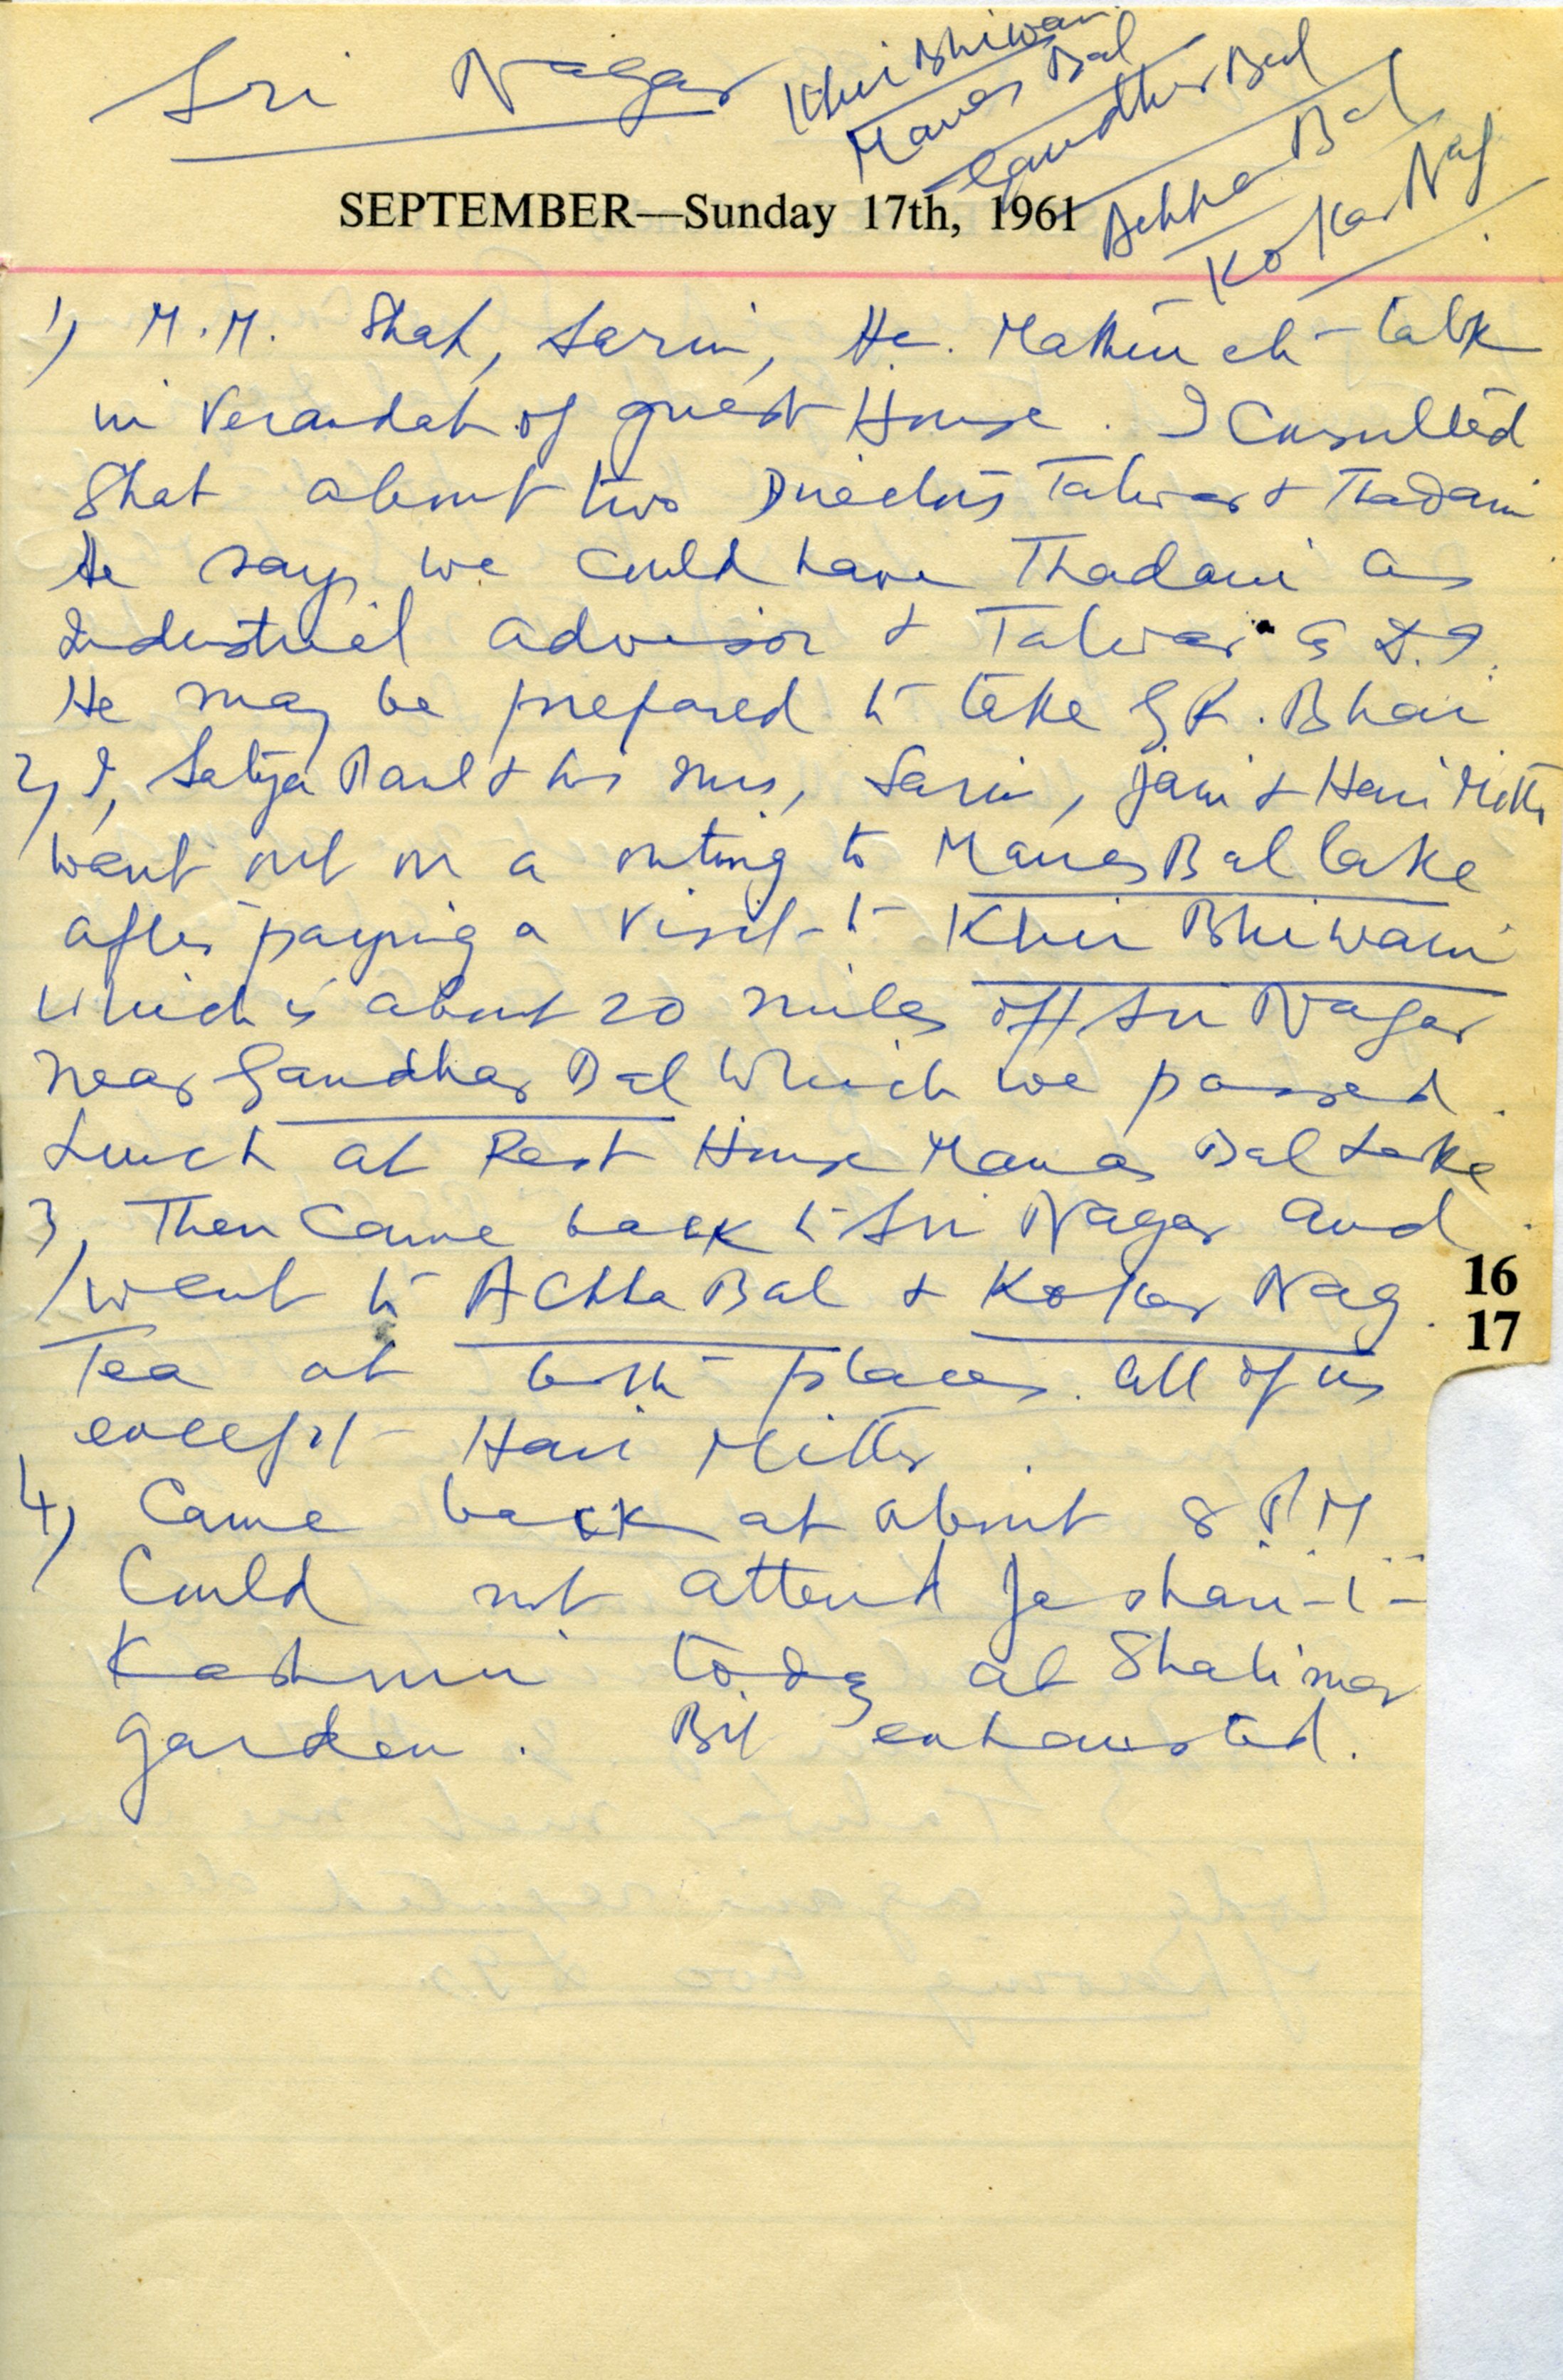 Sri Nagar
Khir Bhiwani
Manas Bal
Gandhar Bal
Achha Bal
Kokar Nag
SEPTEMBER—Sunday 17th, 1961
1) M.M. Shah, Sarin, talk
in Verandah of guest House. I Consulted
Shah about two Directors Talwar & Thadani
He says we could have Thadani as
Industrial advisor & Talwar as D.I.
He may be prepared to take Bhai
2) I, Satya Paul & his sons, Sarin, Jain & Hari Mittr
went out on a outing to Manas Bal lake
after paying a visit to Khir Bhiwani
which is about 20 miles off Sri Nagar
near Gandhar Bal which we passed.
Lunch at Rest House Manas Bal Lake
3) Then Came back to Sri Nagar and
went to Achha Bal & Kokar Nag.
Tea at both places. All of us
except Hari Mittr.
16
17
4) Came back at about 8 P.M.
Could not attend Jashan-i-
Kashmir today at Shalimar
garden. Bit exhausted.